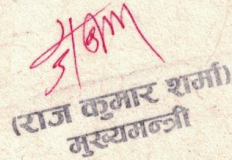 (राज कुमार शर्मा)
मुख्यमन्त्री